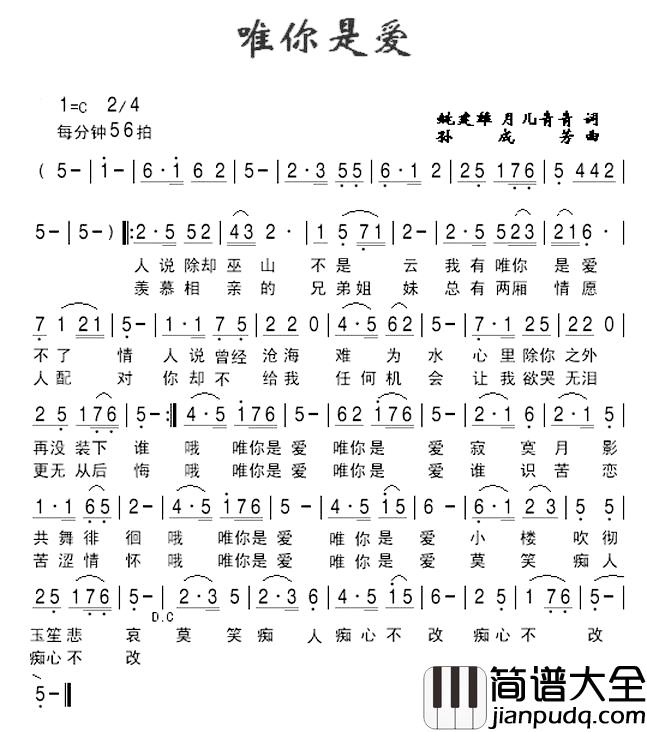 唯你是爱
1=C 2/4
每分钟56拍
姚建雄 月儿青青 词
孙成芳 曲
( 5 - | i - | 6·i 6 2 | 5 - | 2·3 5 5 | 6·1 2 | 2 5 1 7 6 | 5 4 4 2 |
5 - | 5 - ) |: 2·5 5 2 | 4 3 2· | 1 5 7 1 | 2 - | 2·5 5 2 3 | 2 1 6· |
人说除却巫山 不是 云 我有唯你 是爱
羡慕相亲的 兄弟姐 妹 总有两厢 情愿
7 1 2 1 | 5 - | 1·1 7 5 | 2 2 0 | 4·5 6 2 | 5 - | 7·1 2 5 | 2 2 0 |
不了 情 人说曾经 沧海 难 为 水 心里除你 之外
人配 对 你却不 给我 任何机 会 让我欲哭 无泪
2 5 1 7 6 | 5 - :| 4·5 i 7 6 | 5 - | 6 2 i 7 6 | 5 - | 6·1 2 | 2·1 5 |
再没 装下 谁 哦 唯你是 爱 唯你是 爱 寂 寞 月 影
更无 从后 悔 哦 唯你是 爱 唯你是 爱 谁 识 苦 恋
1·1 6 5 | 2 - | 4·5 i 7 6 | 5 - | 4·5 i 5 | 6 - | 6·1 2 3 | 5 5 |
共舞 徘 徊 哦 唯你是 爱 唯你 是 爱 小 楼 吹彻
苦涩情 怀 哦 唯你是 爱 唯 你 是 爱 莫 笑 痴人
2 5 1 7 6 | 5 - | 2·3 5 | 2·3 6 | 4·5 i 5 | 6 - | 2 5 1 7 6 | 5 - |
D.C
玉笙悲 哀 莫 笑 痴 人 痴心不 改 痴心不 改
痴心不 改
5 - ||
简谱大全
jianpudq.com